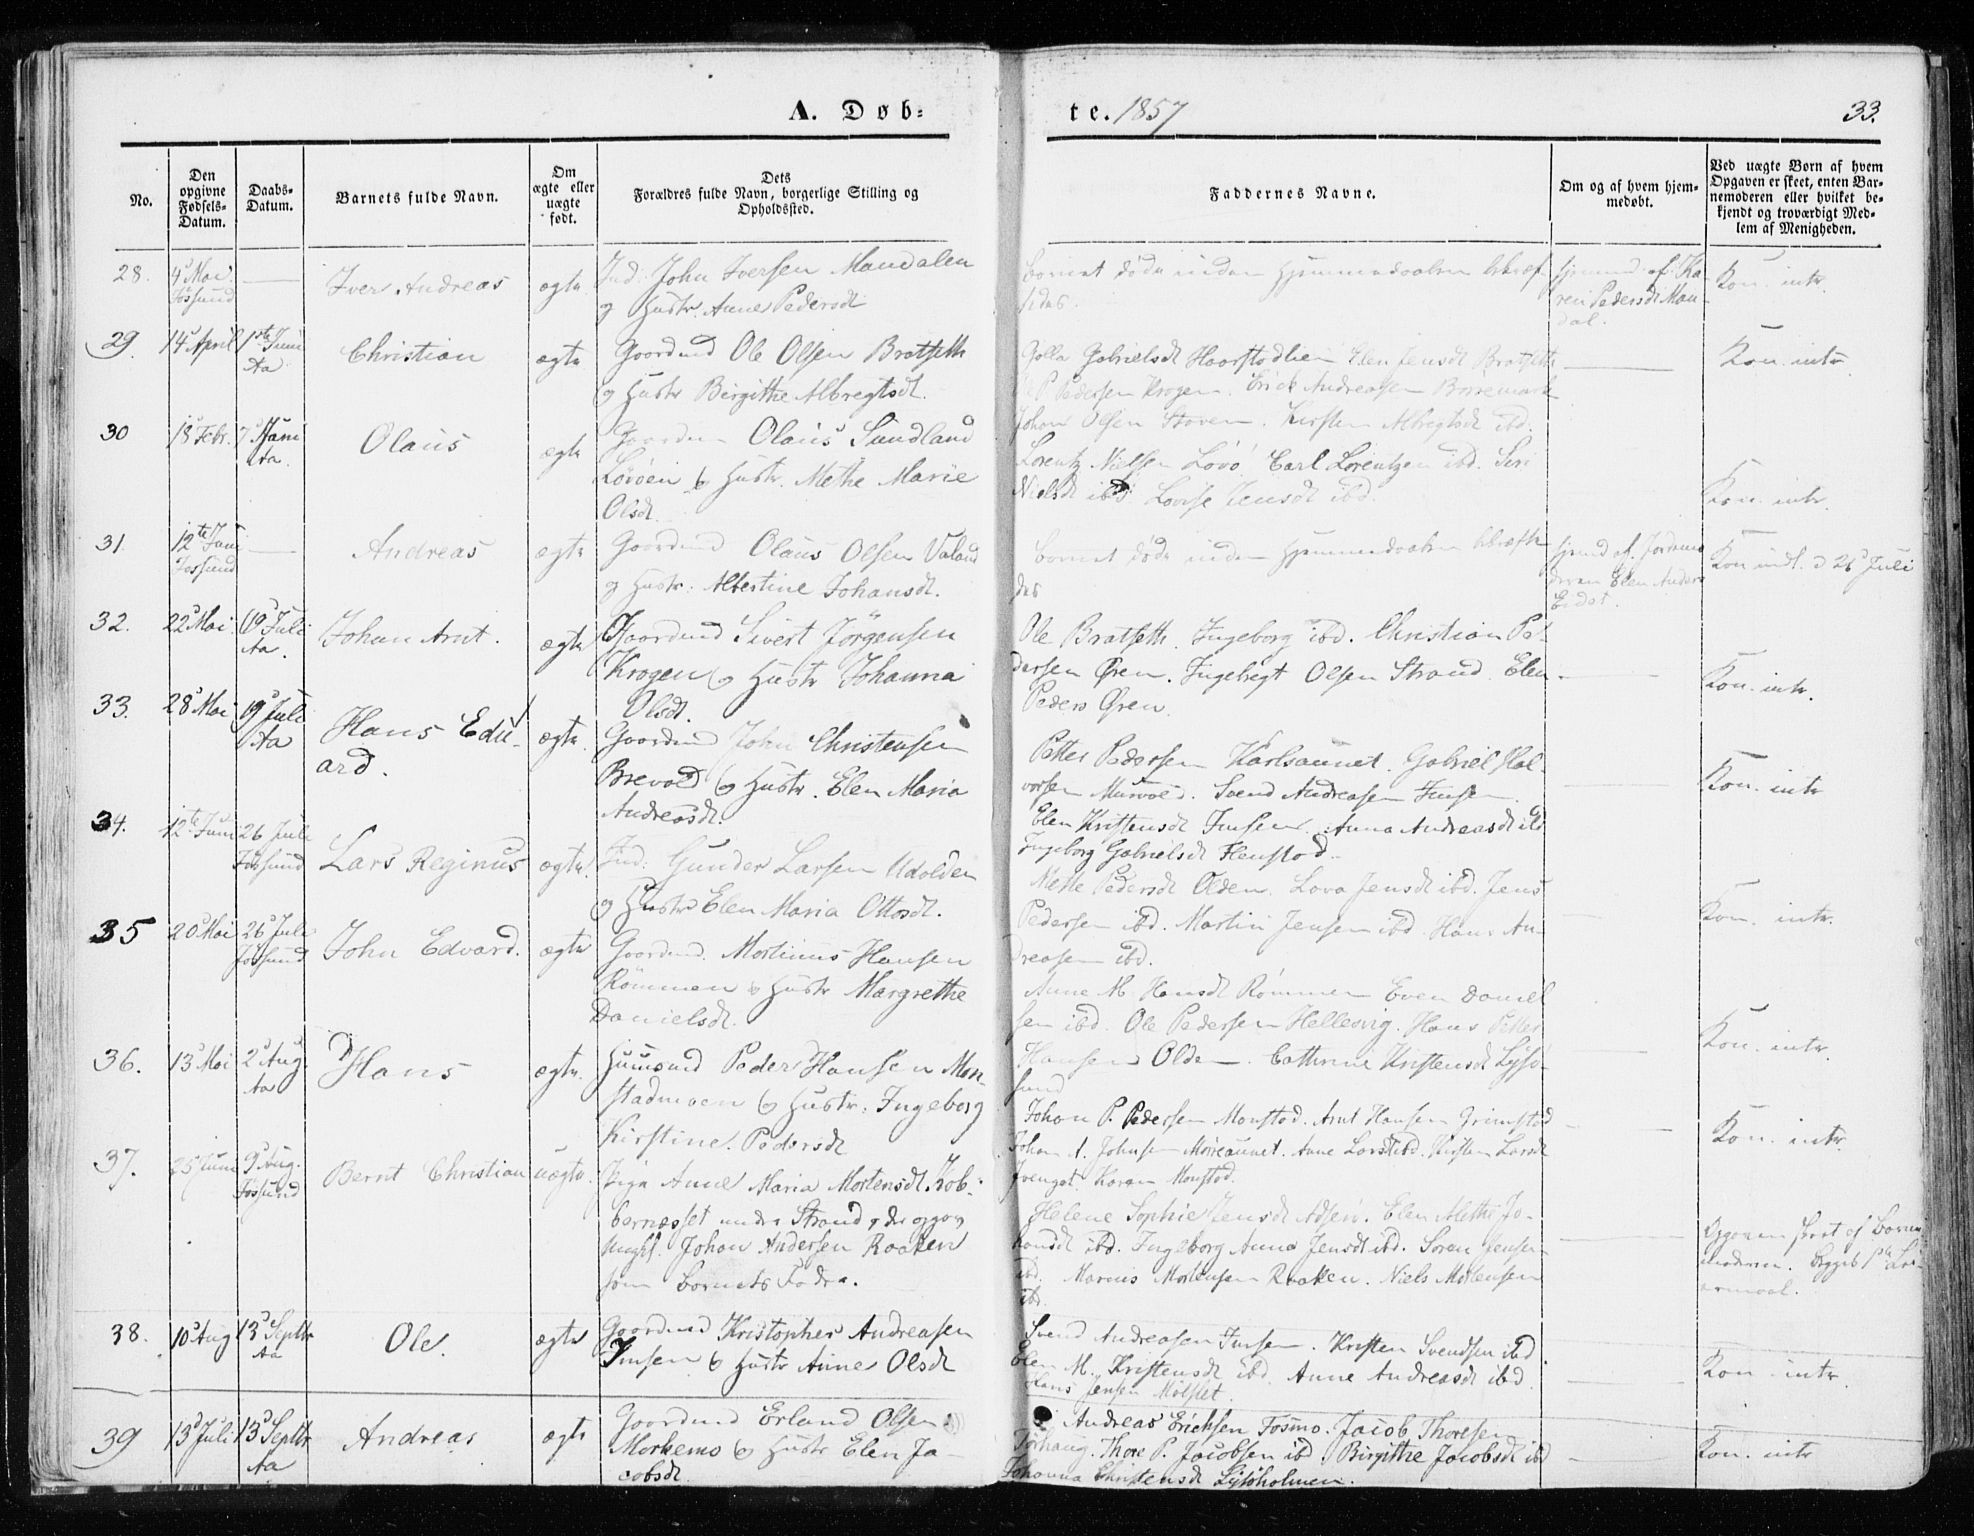 A. Døb=
te. 1857
33.
No.
Den opgivne Fødsels-Datum.
Daabs-Datum.
Barnets fulde Navn.
Om ægte eller uægte født.
Dets Forældres fulde Navn, borgerlige Stilling og Opholdssted.
Faddernes Navne.
Om og af hvem hjemmedøbt.
Ved uægte Børn af hvem Opgaven er skeet, enten Barnemoderen eller hvilket bekjendt og troværdigt Medlem af Menigheden.
28. 4 Mai Jøssund
Iver Andreas
ægte
Ind: John Iversen Mandalen
og Hustr. Anne Pedersdt
Barnet døde inden Hjemmedaaben
Hjemmd. af Ka-
ren Pedersdt Man-
dal.
Kon. intr.
29. 14 April 1ste Juni Aa
Christian
ægte
Gaardmd Ole Olsen Bratseth
og Hustr Birgithe Albregtsdt.
Gabrielsdt Haarstadlien Elen Jensdt Bratseth
P Pedersen Krogen. Erick Andreasen Borremark
Johan Olsen Staven. Kirsten Albregtsdt ibd.
Kon. intr
30 18 Febr. 7 Juni Aa.
Olaus
ægte
Olaus Sundland
Løvøen og Hustr. Methe Marie
Olsdt.
Lorentz Nielsen Løvø Carl Lorentzen ibd. Siri
Nielsdt ibd. Lovise Jensdt ibd.
Kon. intr.
31. 12te Juni Jøssund
Andreas
ægte
Gaardmd Olaus Olsen Valand
og Hustr: Albertine Johansdt.
Barnet døde inden Hjemmedaaben
Hjemmd af Jordemo
deren Elen Anders
Eidet.
Kon indl. d 26 Juli
32. 22 Mai 19 Juli Aa.
Johan Arnt.
ægte
Gaardmd Sivert Jørgensen
Krogen og Hustr Johanna
Olsdt.
Ole Bratseth. Ingeborg ibd. Christian Pe-
dersen Øren. Ingebregt Olsen Strand. Elen
Peders Øren.
Kon. intr.
33. 28 Mai 19 Juli Aa
Hans Edu-
ard.
ægte.
Gaardmd John Christensen
Brevold og Hustr. Elen Maria
Andreasdt.
Petter Pedersen Karlsaunet. Gabriel Hal-
vorsen Murvold. Svend Andreasen Imsen.
Elen Kristensdt Imsen. Anna Andreasdt ibd
Ingeborg Gabrielsdt Henstad.
Kon. intr
34. 12te Juni 26 Juli Jøssund
Lars Reginus
ægte.
Ind: Gunder Larsen Udolden
og Hustr Elen Maria Ottosdt.
Mette Pedersdt Olden. Lova Jensdt ibd. Jens
Pedersen ibd. Martin Jensen ibd. Hans An-
dreasen ibd.
Kon. intr.
35 20 Mai 26 Juli Jøssund
John Edvard.
ægte
Gaardmd. Martinus Hansen
Rømmen og Hustr Margrethe
Danielsdt.
Anne M. Hansdt Rømmen Even Daniel
sen ibd. Ole Pedersen Hellesvig. Hans Petter
Hansen Olden. Cathrine Kristensdt Lysø-
sund
Kon. intr.
36. 13 Mai 2 Aug. Aa
Hans
ægte.
Huusmd Peder Hansen Mon-
stadmoen og Hustr: Ingeborg
Kirstine Pedersdt
Johan P. Pedersen Monstad. Arnt Hansen Grimstad
Johan A. Johnsen Møreaunet. Anne Larsdt ibd. Kirsten Larsdt
Karen Monstad.
Kon. intr.
37. 25 Juni 9 Aug. Jøssund
Bernt Christian
uægte.
Pige Anne Maria Mortensdt Kob-
bernæsset under Strand,
Ungkl. Johan Andersen Raaken
som Barnets Fader.
Helene Sophie Jensdt Adsen. Elen Methe Jo-
hansdt ibd. Ingeborg Anna Jensdt ibd. Søren Jensen
ibd. Marius Mortensen Raaken. Niels Mortensen
ibd.
Opgaven skeet af Barne-
moderen. Begges 1ste Lei-
ermaal.
38. 10 Aug 13 Septbr Aa
Ole.
ægte
Gaardmd Kristopher Andreasen
Imsen og Hustr Anne Olsdt
Svend Andreasen Imsen. Kristen Svendsen ibd
Elen M. Kristensdt ibd. Anne Andreasdt ibd
Hans Jensen Mølslet.
Kon. intr
39 13 Juli 13 Septbr Aa
Andreas
ægte
Gaardmd Erland Olsen
Morkemo og Hustr Elen Ja-
cobsdt
Andreas Erichsen Fosmo. Jacob Thoresen
Forhaug. Thore P. Jacobsen ibd. Birgithe Jacobsdt ibd
Johanna Christensdt Lysøholmen.
Kon. intr